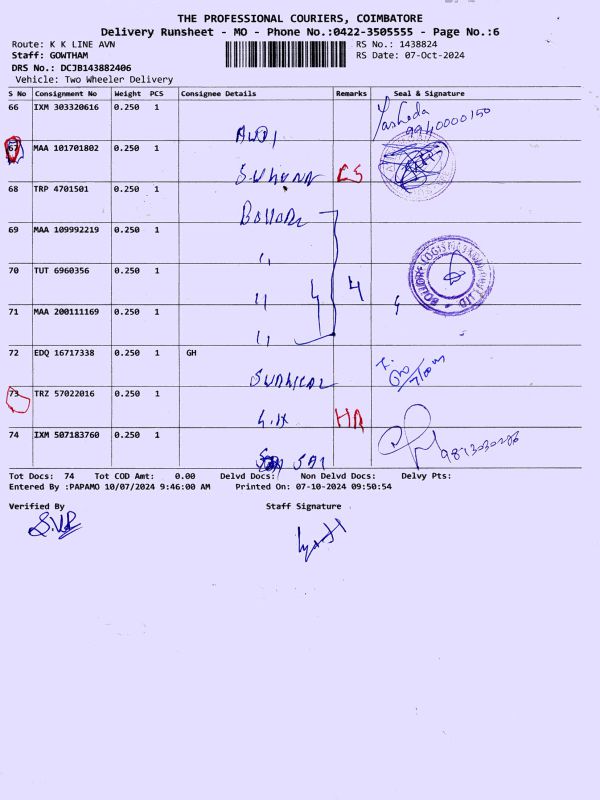 THE PROFESSIONAL COURIERS, COIMBATORE
Delivery Runsheet - MO - Phone No.:0422-3505555 - Page No.:6
Route: K K LINE AVN RS No.: 1438824
Staff: GOWTHAM RS Date: 07-Oct-2024
DRS No.: DCJB143882406
Vehicle: Two Wheeler Delivery
S No Consignment No Weight PCS Consignee Details Remarks Seal & Signature
66 IXM 303320616 0.250 1
Yasheda
9940000150
AUDI
67 MAA 101701802 0.250 1
CS
68 TRP 4701501 0.250 1
69 MAA 109992219 0.250 1
"
70 TUT 6960356 0.250 1
" 4 4
71 MAA 200111169 0.250 1
"
72 EDQ 16717338 0.250 1 GH
73 TRZ 57022016 0.250 1
HA
74 IXM 507183760 0.250 1
SAI
Tot Docs: 74 Tot COD Amt: 0.00 Delvd Docs: Non Delvd Docs: Delvy Pts:
Entered By :PAPAMO 10/07/2024 9:46:00 AM Printed On: 07-10-2024 09:50:54
Verified By Staff Signature